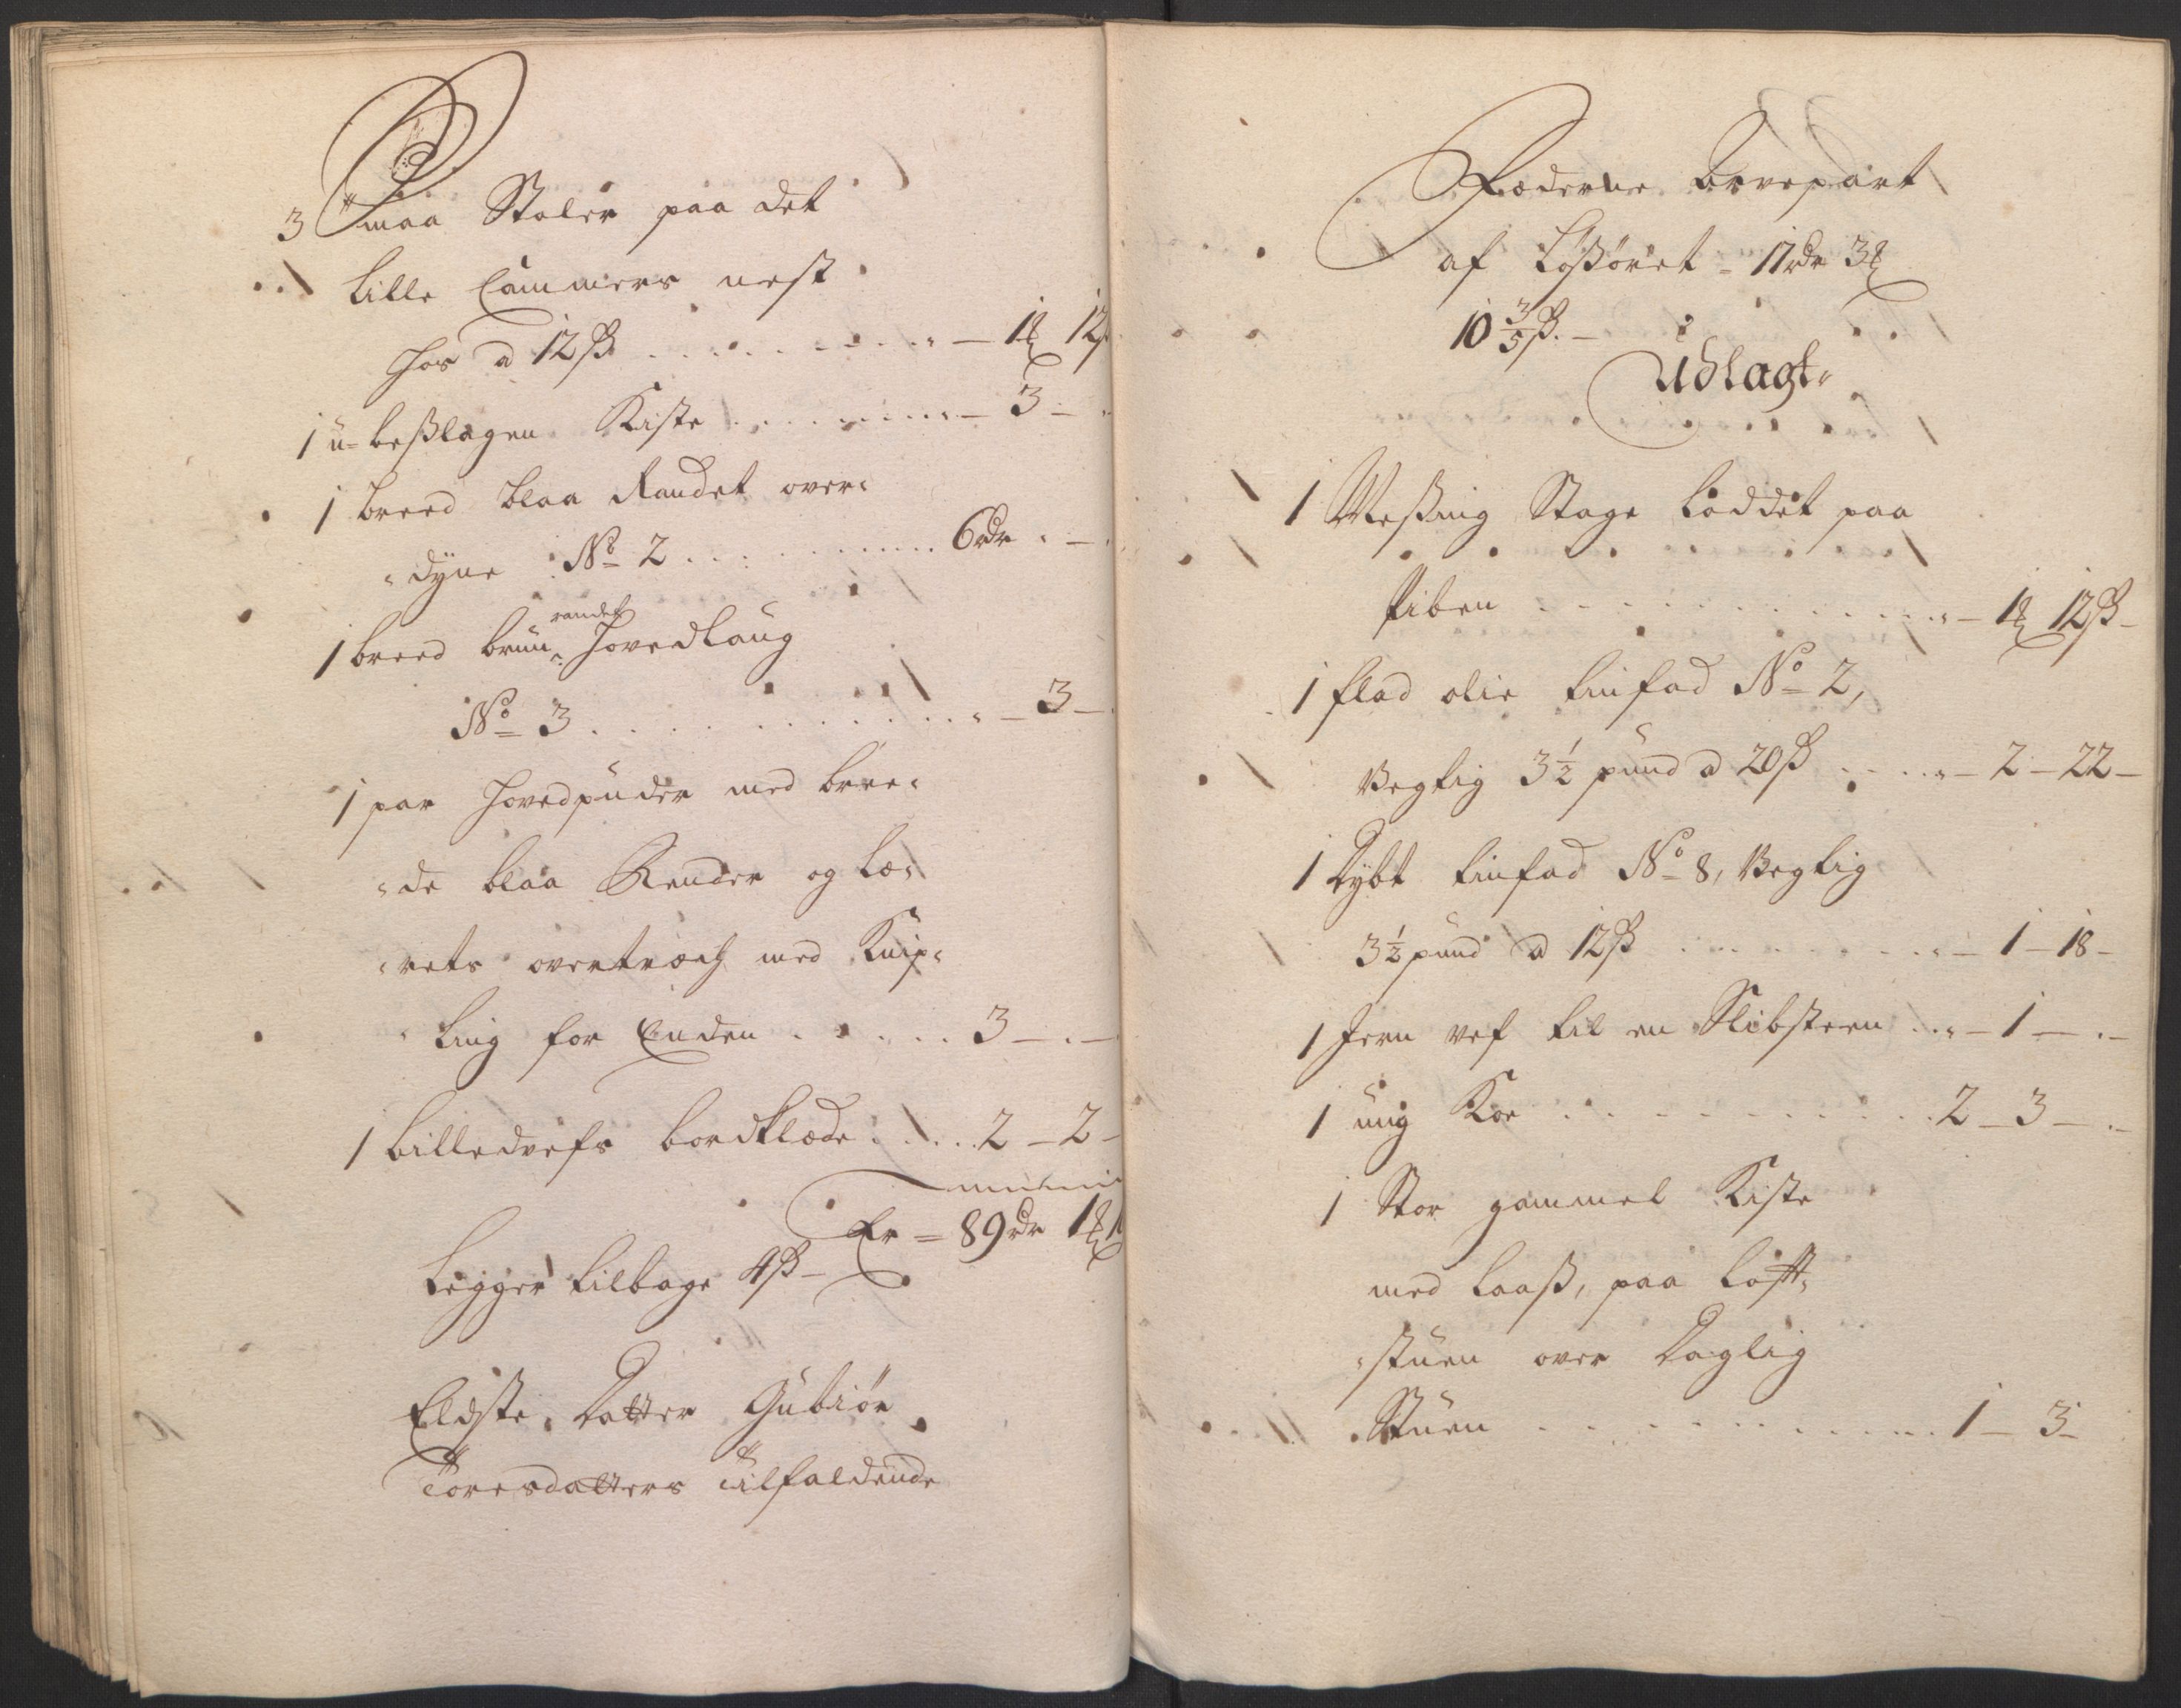 3 Smaa Stoler paa det
lille Cammers nest
hos a 12 ß . . . . . . . . . — 1 ₰ 12
1 u-beßlagen Kiste . . . . . . . — 3 —
1 breed blaa Randet over-
-dyne No 2 . . . . . . . . . 6 rdr . —
randet
1 breed brun Hovedlaug
No 3 . . . . . . . . . . . . — 3 —
1 par Hovedpuder med bree-
-de blaa Render og læ-
-rets overtræch med Knip-
-ling for Enden . . . . . . 3 — . —
1 billedvefs bordklæde . . . . 2 — 2 —
Er = 89 rdr 1 ₰ 1
Ligger tilbage 4 ß —
Eldste Datter Gubiør
Toresdatters tilfaldende
Fæderne Arvepart
af Løßøret = 17 rdr 3 ₰
10 3/5 ß. —
Udlagt.
1 Meßing Stage loddet paa
Piben . . . . . . . . . . . . — 1 ₰ 12 ß —
1 flad olie tinfad No 2,
Vegtig 3 1/2 pund a 20 ß . . . . — 2 — 22 —
1 Dybt tinfad No 8, Vegtig
3 1/2 pund a 12 ß . . . . . . . . — 1 — 18 —
1 Jern vef til en Slibsteen . . — 1 — . —
1 ung Koe . . . . . . . . . . . 2 — 3 — . —
1 Stor gammel Kiste
med Laaß, paa Loft-
-stuen over Daglig
Stuen . . . . . . . . . . . . 1 — 3 —